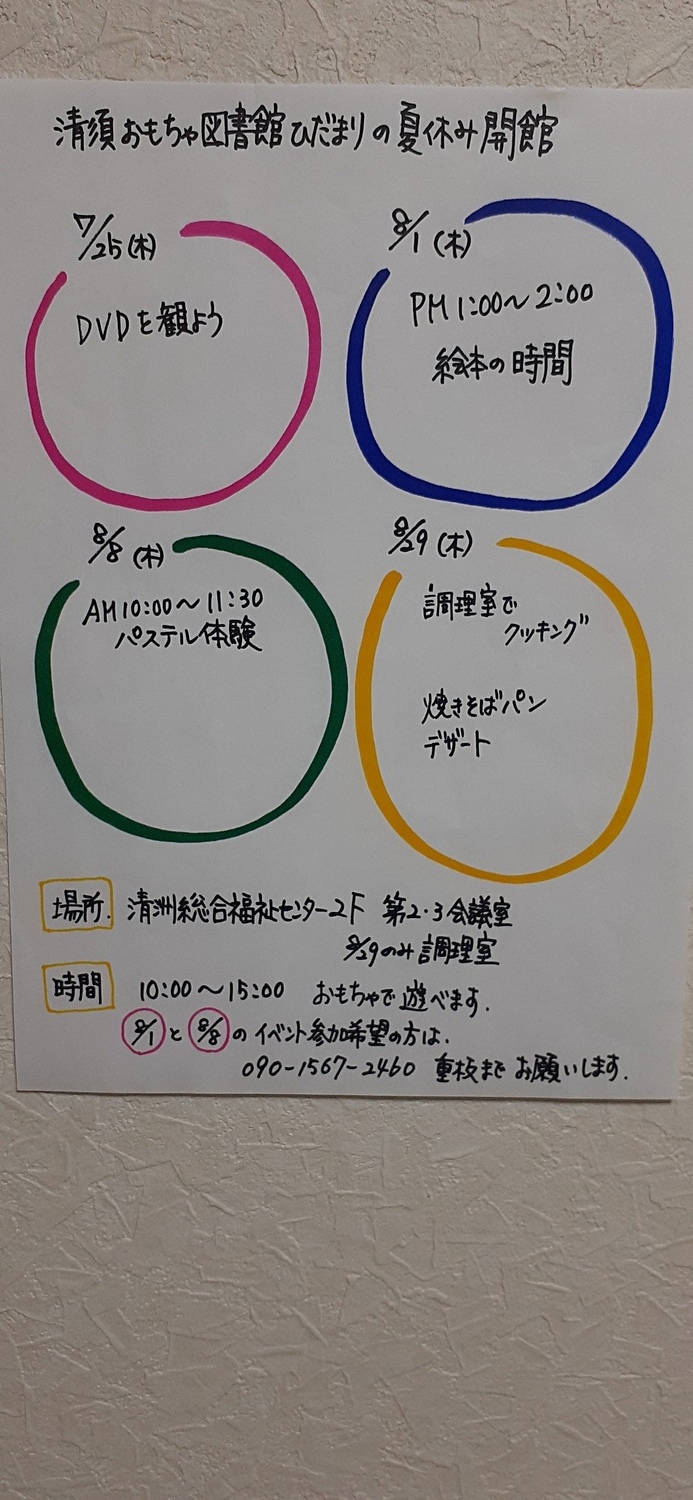 清須おもちゃ図書館ひだまりの夏休み開館
7/25(木)
DVDを観よう
8/1(木)
PM1:00〜2:00
絵本の時間
8/8(木)
AM10:00〜11:30
パステル体験
8/29(木)
調理室で
クッキング
焼きそばパン
デザート
場所. 清洲総合福祉センター2F 第2・3会議室
8/29のみ調理室
時間 10:00〜15:00 おもちゃで遊べます.
8/1と8/8のイベント参加希望の方は.
090-1567-2460 重枝までお願いします.